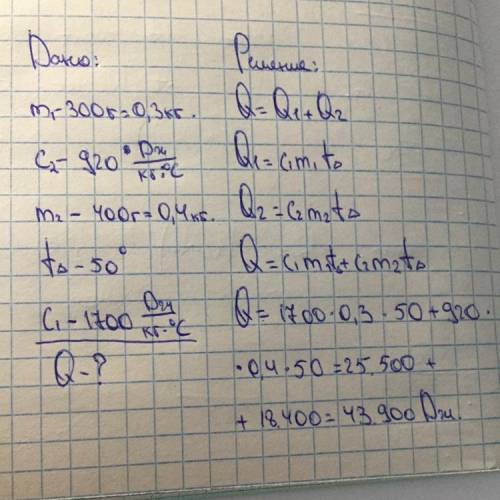 Дано:
m₁-300г=0,3кг.
C₂-920 Дж/кг·°C
m₂-400г=0,4кг.
t∆-50°
C₁-1700 Дж/кг·°C
Q-?
Решение:
Q=Q₁+Q₂
Q₁=C₁m₁t∆
Q₂=C₂m₂t∆
Q=C₁m₁t∆+C₂m₂t∆
Q=1700·0,3·50+920·
·0,4·50=25.500+
+18.400=43.900Дж.